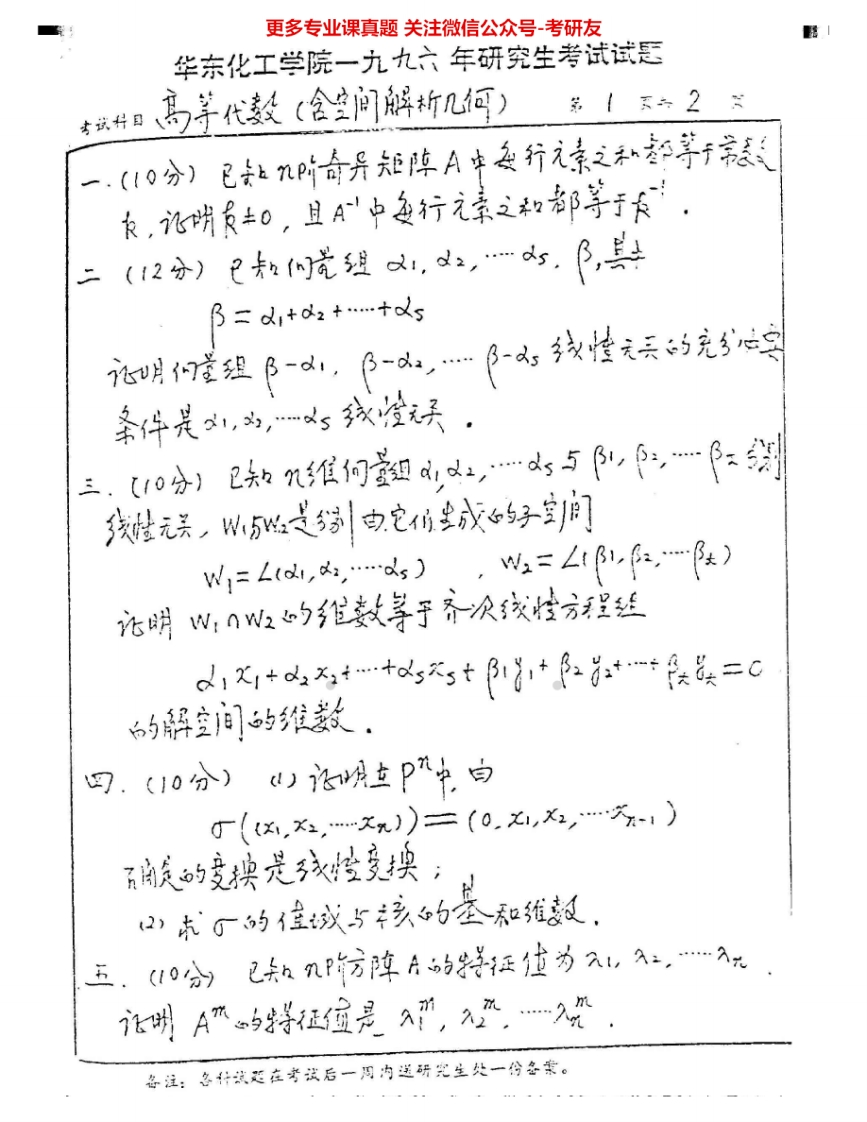 更多专业课真题 关注微信公众号-考研友
华东化工学院一九九六年研究生考试试题
考试科目 高等代数(含空间解析几何) 第1页共2页
一.(10分) 已知n阶奇异矩阵A中每行元素之和都等于常数
k,证明k≠0,且A⁻¹中每行元素之和都等于k⁻¹.
二 (12分) 已知向量组 α₁,α₂,……αs,β,其中
β=α₁+α₂+……+αs
证明向量组 β-α₁,β-α₂,……β-αs 线性无关的充分必要
条件是 α₁,α₂,……αs 线性无关.
三.(10分) 已知n维向量组 α₁,α₂,……αs 与 β₁,β₂,……βt 分别
线性无关,W₁与W₂是分别由它们生成的子空间
W₁=L(α₁,α₂,……αs) ,W₂=L(β₁,β₂,……βt)
证明 W₁∩W₂ 的维数等于齐次线性方程组
α₁x₁+α₂x₂+……+αsxs+β₁y₁+β₂y₂+……+βtyt=0
的解空间的维数.
四.(10分) (1) 证明在Pⁿ中,由
σ((x₁,x₂,……xn))=(0,x₁,x₂,……xn-1)
确定的变换是线性变换;
(2) 求σ的值域与核的基和维数.
五.(10分) 已知n阶方阵A的特征值为 λ₁,λ₂,……λn.
证明 Aᵐ的特征值是 λ₁ᵐ,λ₂ᵐ,……λnᵐ.
备注:各份试题在考试后一周内送研究生处一份备案。